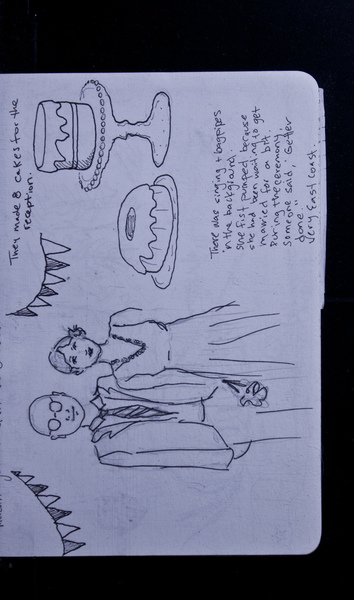 They made 8 cakes for the
reception.
There was singing + bagpipes
in the background.
She fist pumped because
she had been waiting to get
married for a bit.
During the ceremony,
someone said, "Getter
done."
Very East Coast